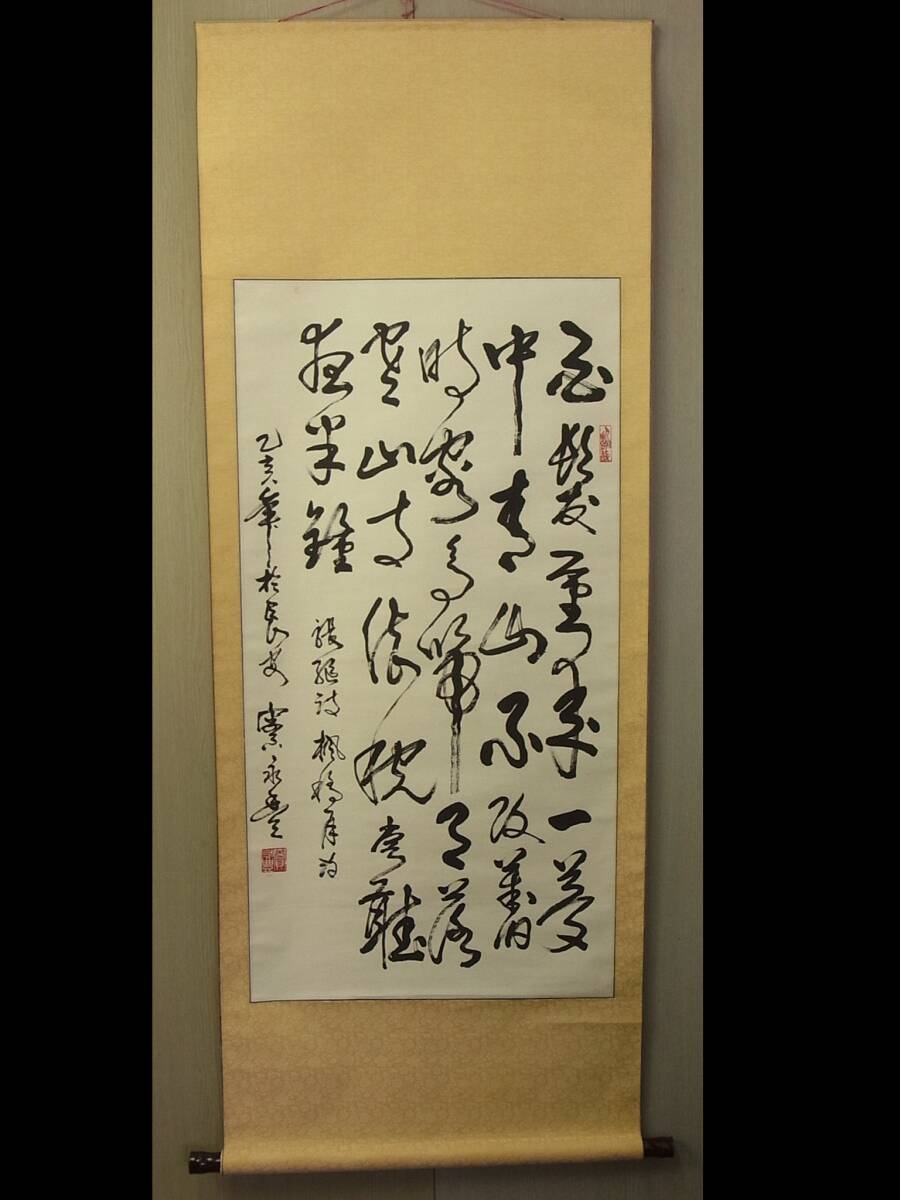 白髮重來一夢
中青山不改舊
時容烏啼月落
寒山寺依枕嘗聽
夜半鐘
張繼詩楓橋再泊
乙亥年於長安 永